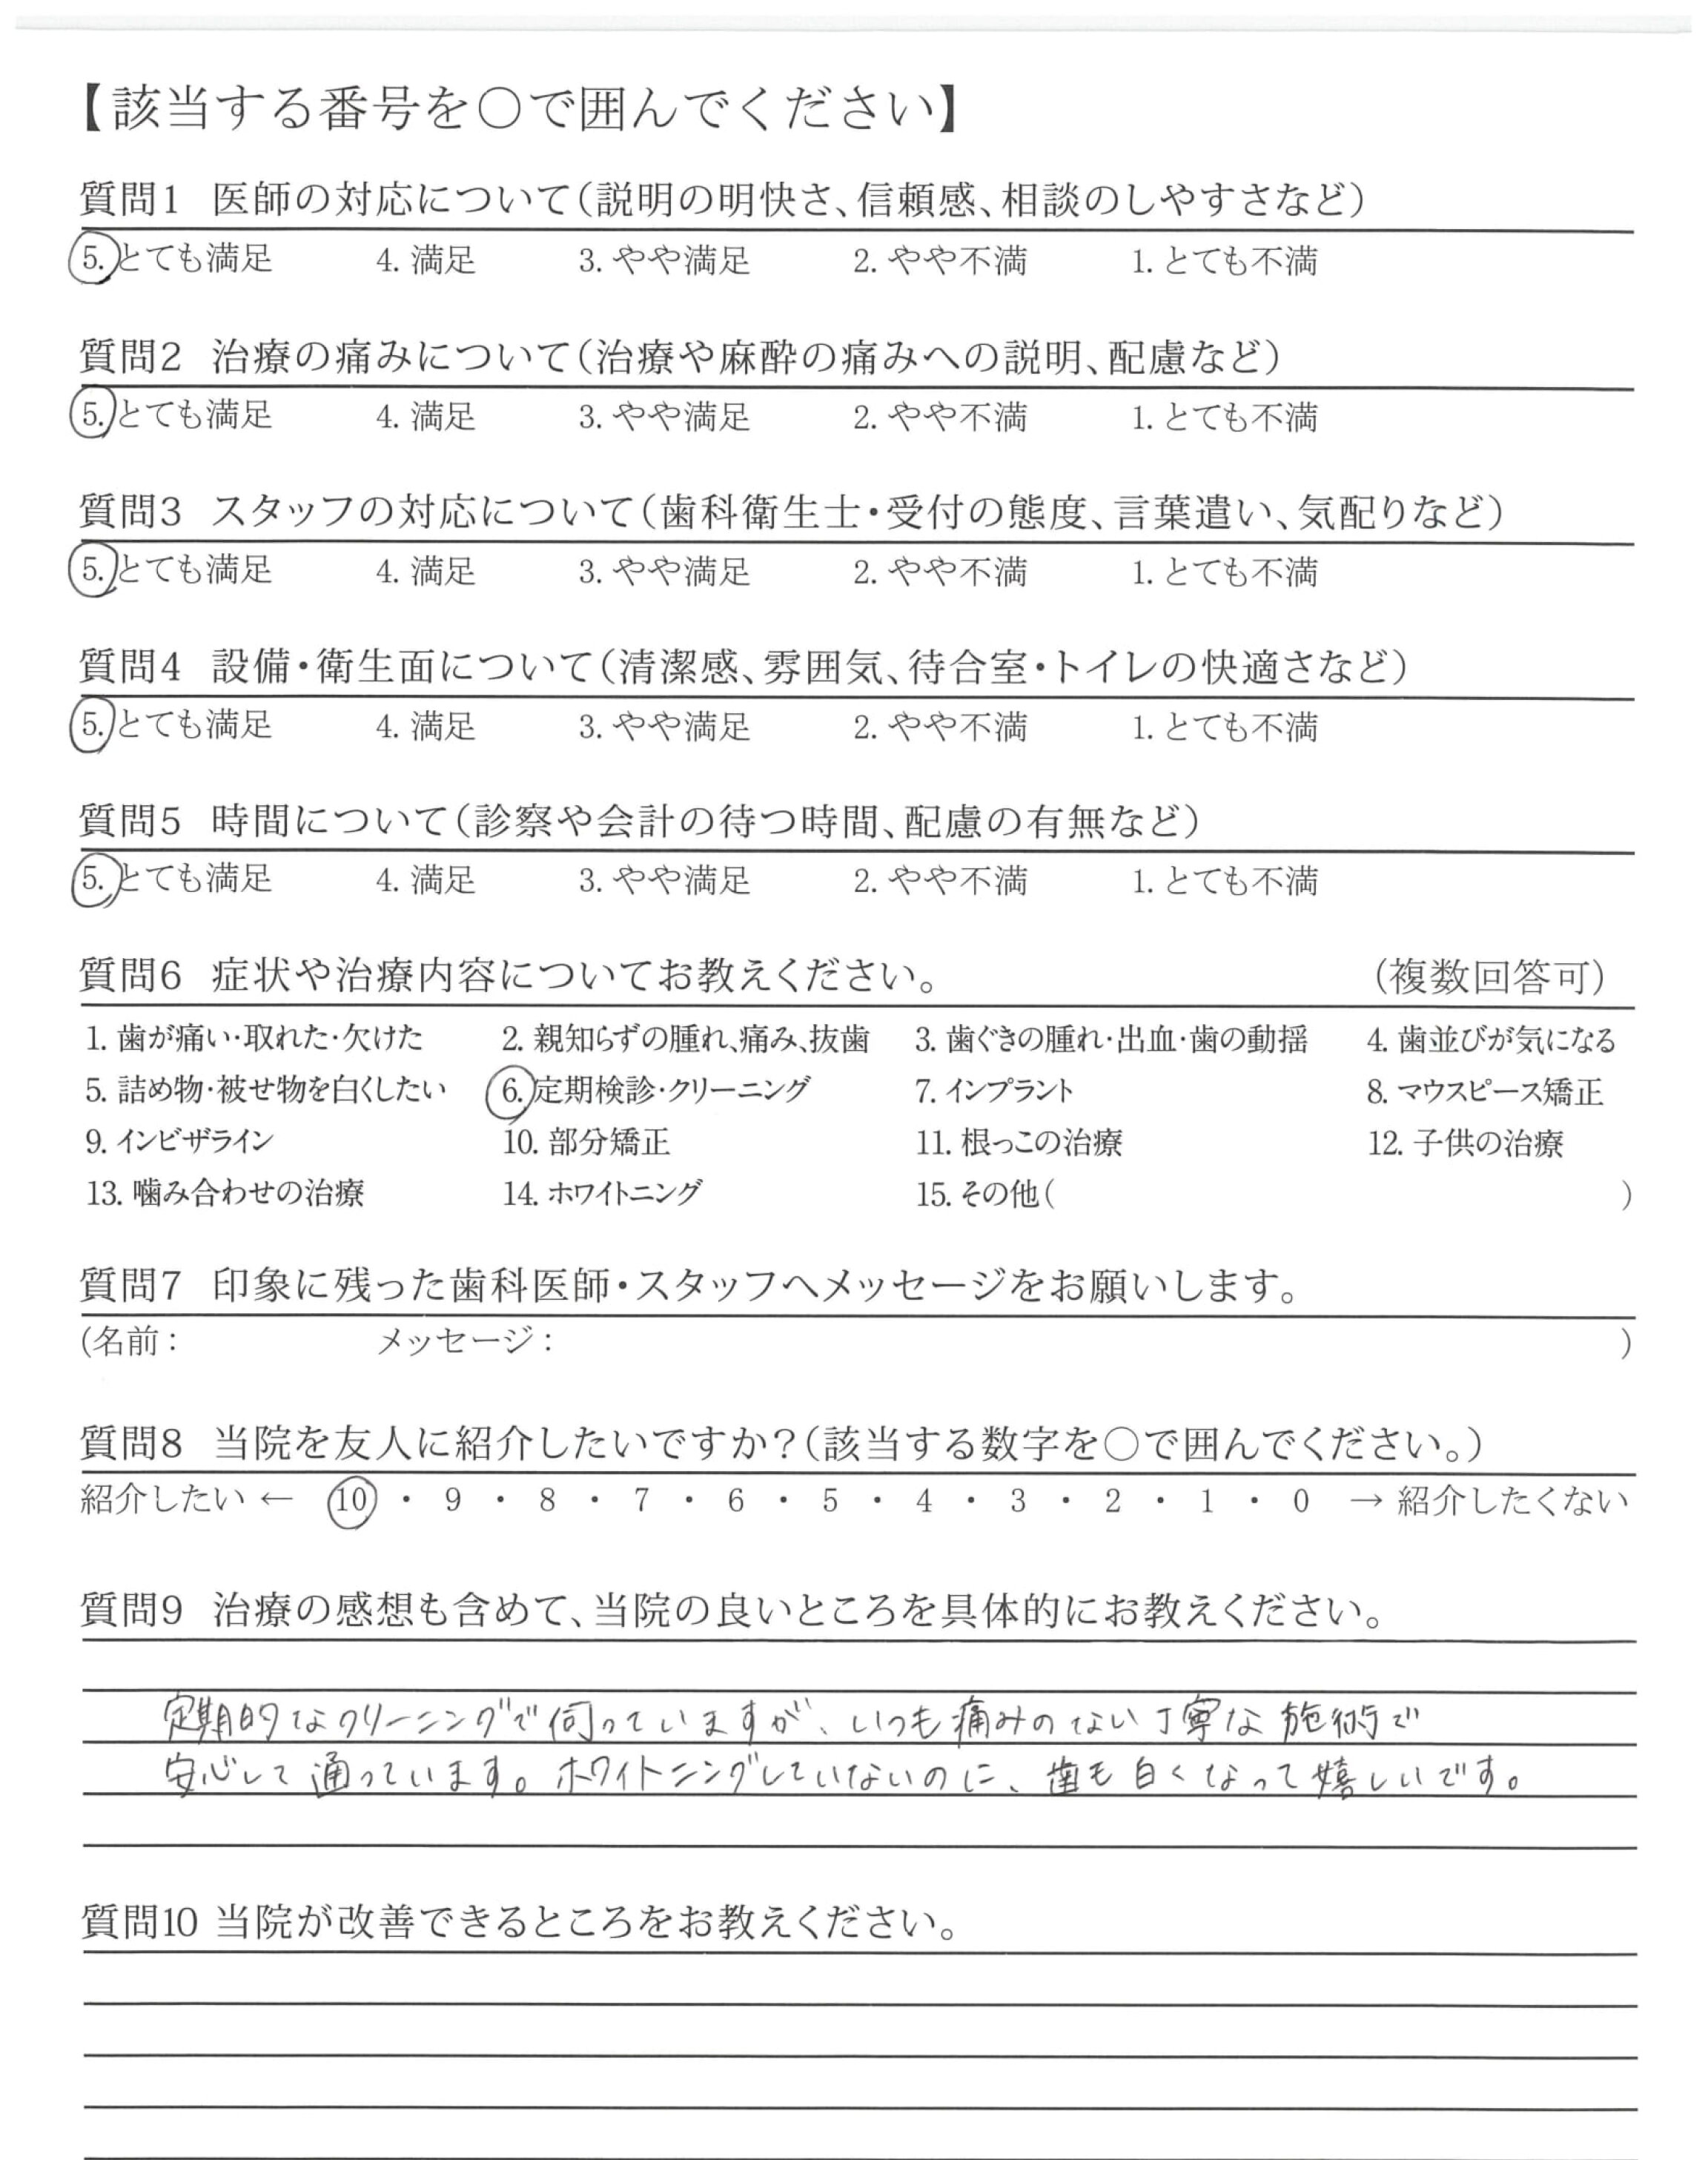 【該当する番号を○で囲んでください】
質問1 医師の対応について(説明の明快さ、信頼感、相談のしやすさなど)
5. とても満足 4. 満足 3. やや満足 2. やや不満 1. とても不満
質問2 治療の痛みについて(治療や麻酔の痛みへの説明、配慮など)
5. とても満足 4. 満足 3. やや満足 2. やや不満 1. とても不満
質問3 スタッフの対応について(歯科衛生士・受付の態度、言葉遣い、気配りなど)
5. とても満足 4. 満足 3. やや満足 2. やや不満 1. とても不満
質問4 設備・衛生面について(清潔感、雰囲気、待合室・トイレの快適さなど)
5. とても満足 4. 満足 3. やや満足 2. やや不満 1. とても不満
質問5 時間について(診察や会計の待つ時間、配慮の有無など)
5. とても満足 4. 満足 3. やや満足 2. やや不満 1. とても不満
質問6 症状や治療内容についてお教えください。 (複数回答可)
1. 歯が痛い・取れた・欠けた 2. 親知らずの腫れ、痛み、抜歯 3. 歯ぐきの腫れ・出血・歯の動揺 4. 歯並びが気になる
5. 詰め物・被せ物を白くしたい 6. 定期検診・クリーニング 7. インプラント 8. マウスピース矯正
9. インビザライン 10. 部分矯正 11. 根っこの治療 12. 子供の治療
13. 噛み合わせの治療 14. ホワイトニング 15. その他( )
質問7 印象に残った歯科医師・スタッフへメッセージをお願いします。
(名前: メッセージ: )
質問8 当院を友人に紹介したいですか?(該当する数字を○で囲んでください。)
紹介したい ← 10 ・ 9 ・ 8 ・ 7 ・ 6 ・ 5 ・ 4 ・ 3 ・ 2 ・ 1 ・ 0 → 紹介したくない
質問9 治療の感想も含めて、当院の良いところを具体的にお教えください。
定期的なクリーニングで伺っていますが、いつも痛みのない丁寧な施術で
安心して通っています。ホワイトニングしていないのに、歯も白くなって嬉しいです。
質問10 当院が改善できるところをお教えください。